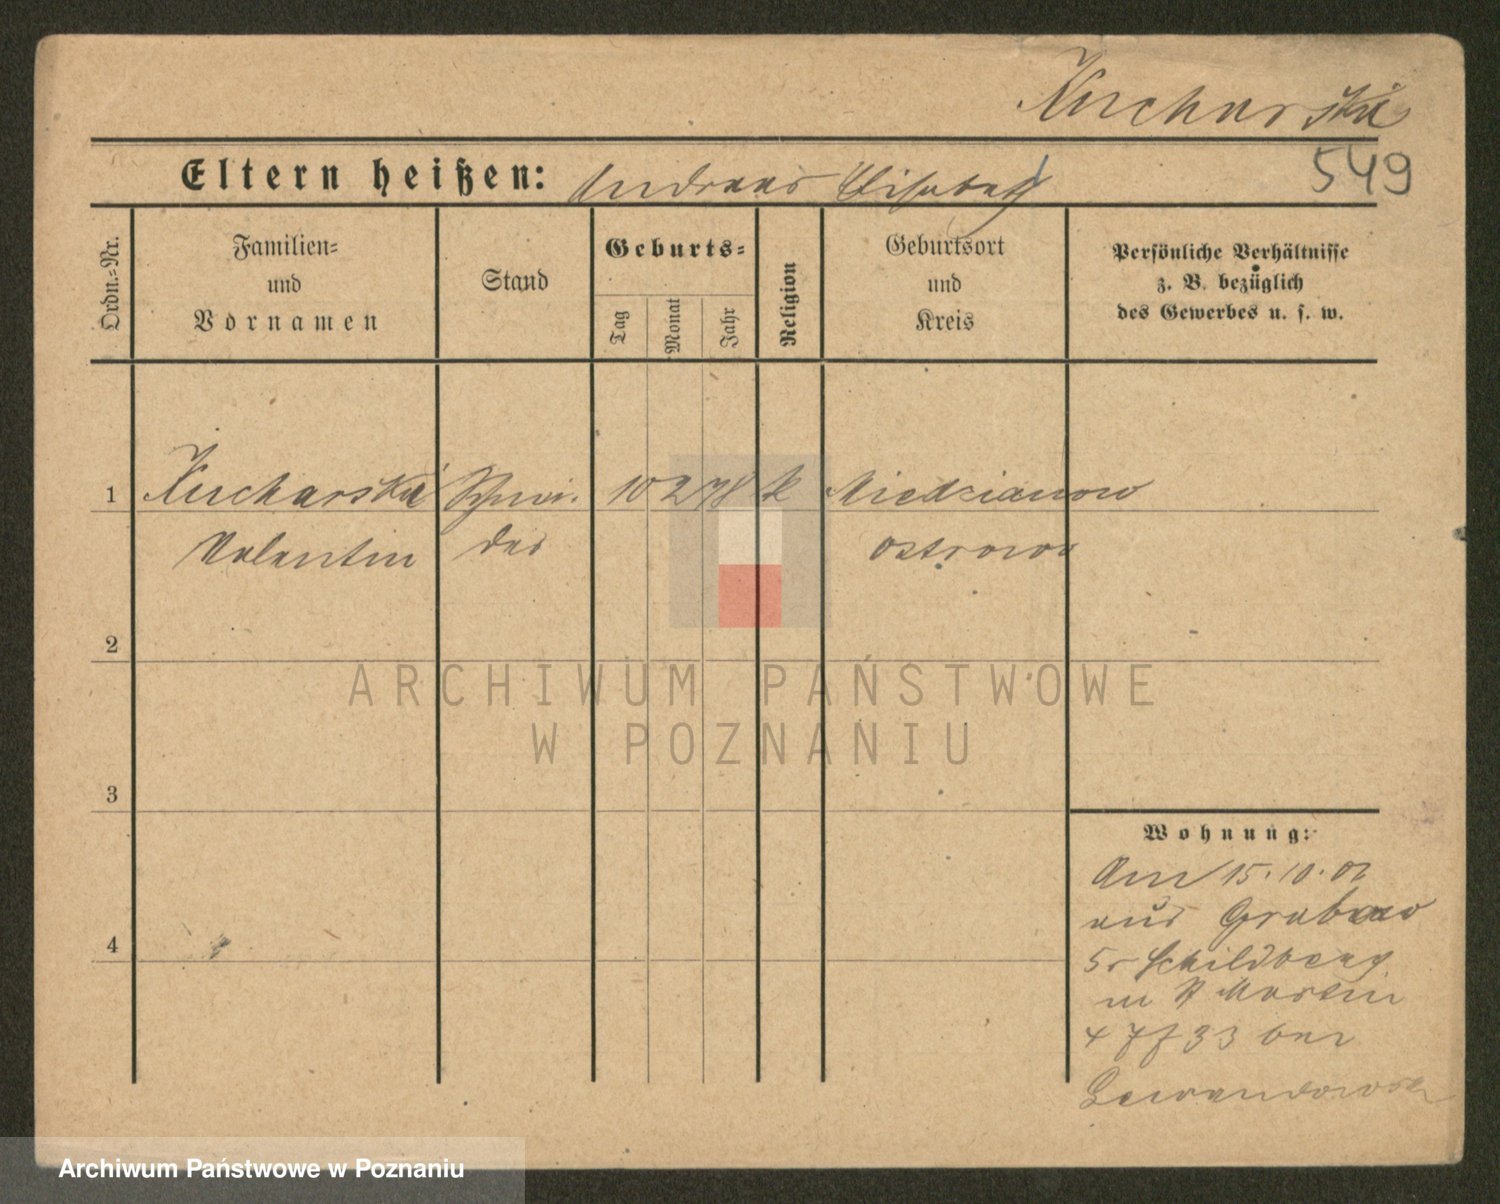 Kucharski
549
Eltern heißen: Andreas Elisabeth
Ordn.=Nr.
Familien=
und
Vornamen
Stand
Geburts=
Tag
Monat
Jahr
Religion
Geburtsort
und
Kreis
Persönliche Verhältnisse
z. B. bezüglich
des Gewerbes u. s. w.
1 Kucharski Schnei. 10 2 78 k Niedzianow
Valentin der Ostrowo
2
ARCHIWUM PAŃSTWOWE
W POZNANIU
3
Wohnung:
Am 15.10.01
aus Grabow
Schildberg
St Martin
33 bei
Lewandowski
4
Archiwum Państwowe w Poznaniu